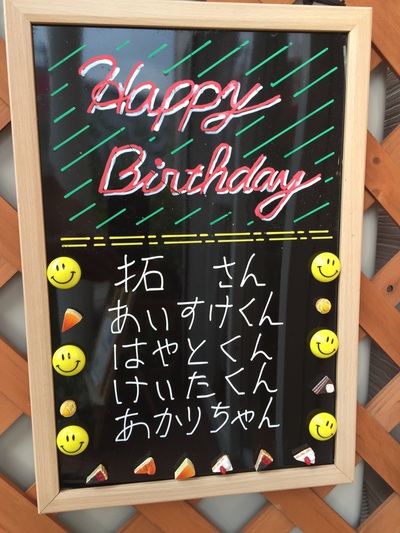 Happy
Birthday
拓 さん
あいすけくん
はやとくん
けいたくん
あかりちゃん